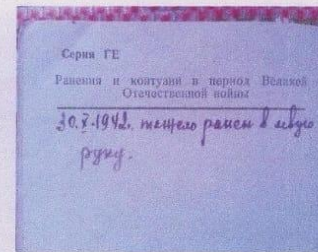 Серия ГЕ
Ранения и контузии в период Великой
Отечественной войны
30.X.1942. тяжело ранен в левую
руку.